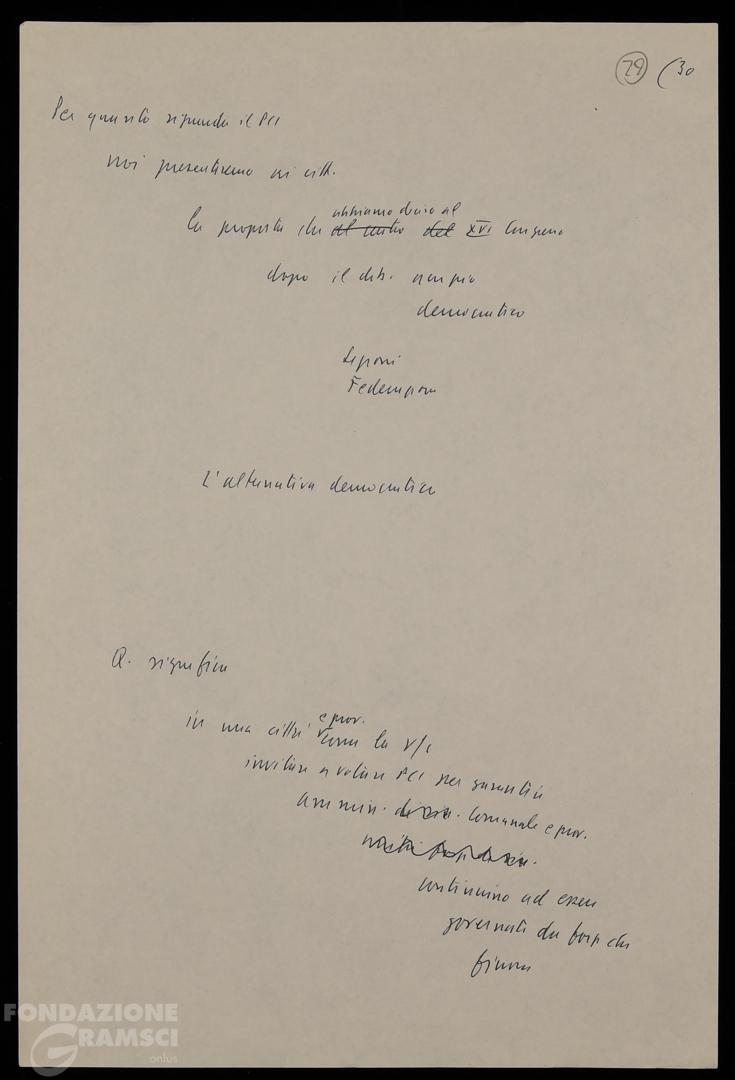 29 (30
Per quanto riguarda il PCI
noi presentiamo ai citt.
abbiamo deciso al
la proposta che al centro del XVI Congresso
dopo il dib. ampio
democratico
Sezioni
Federazioni
L'alternativa democratica
Q. significa
e prov.
in una città come la V/
invitare a votare PCI per garantire
ammin. comunale e prov.
continuino ad essere
governati da forze che
finora
FONDAZIONE
GRAMSCI
onlus